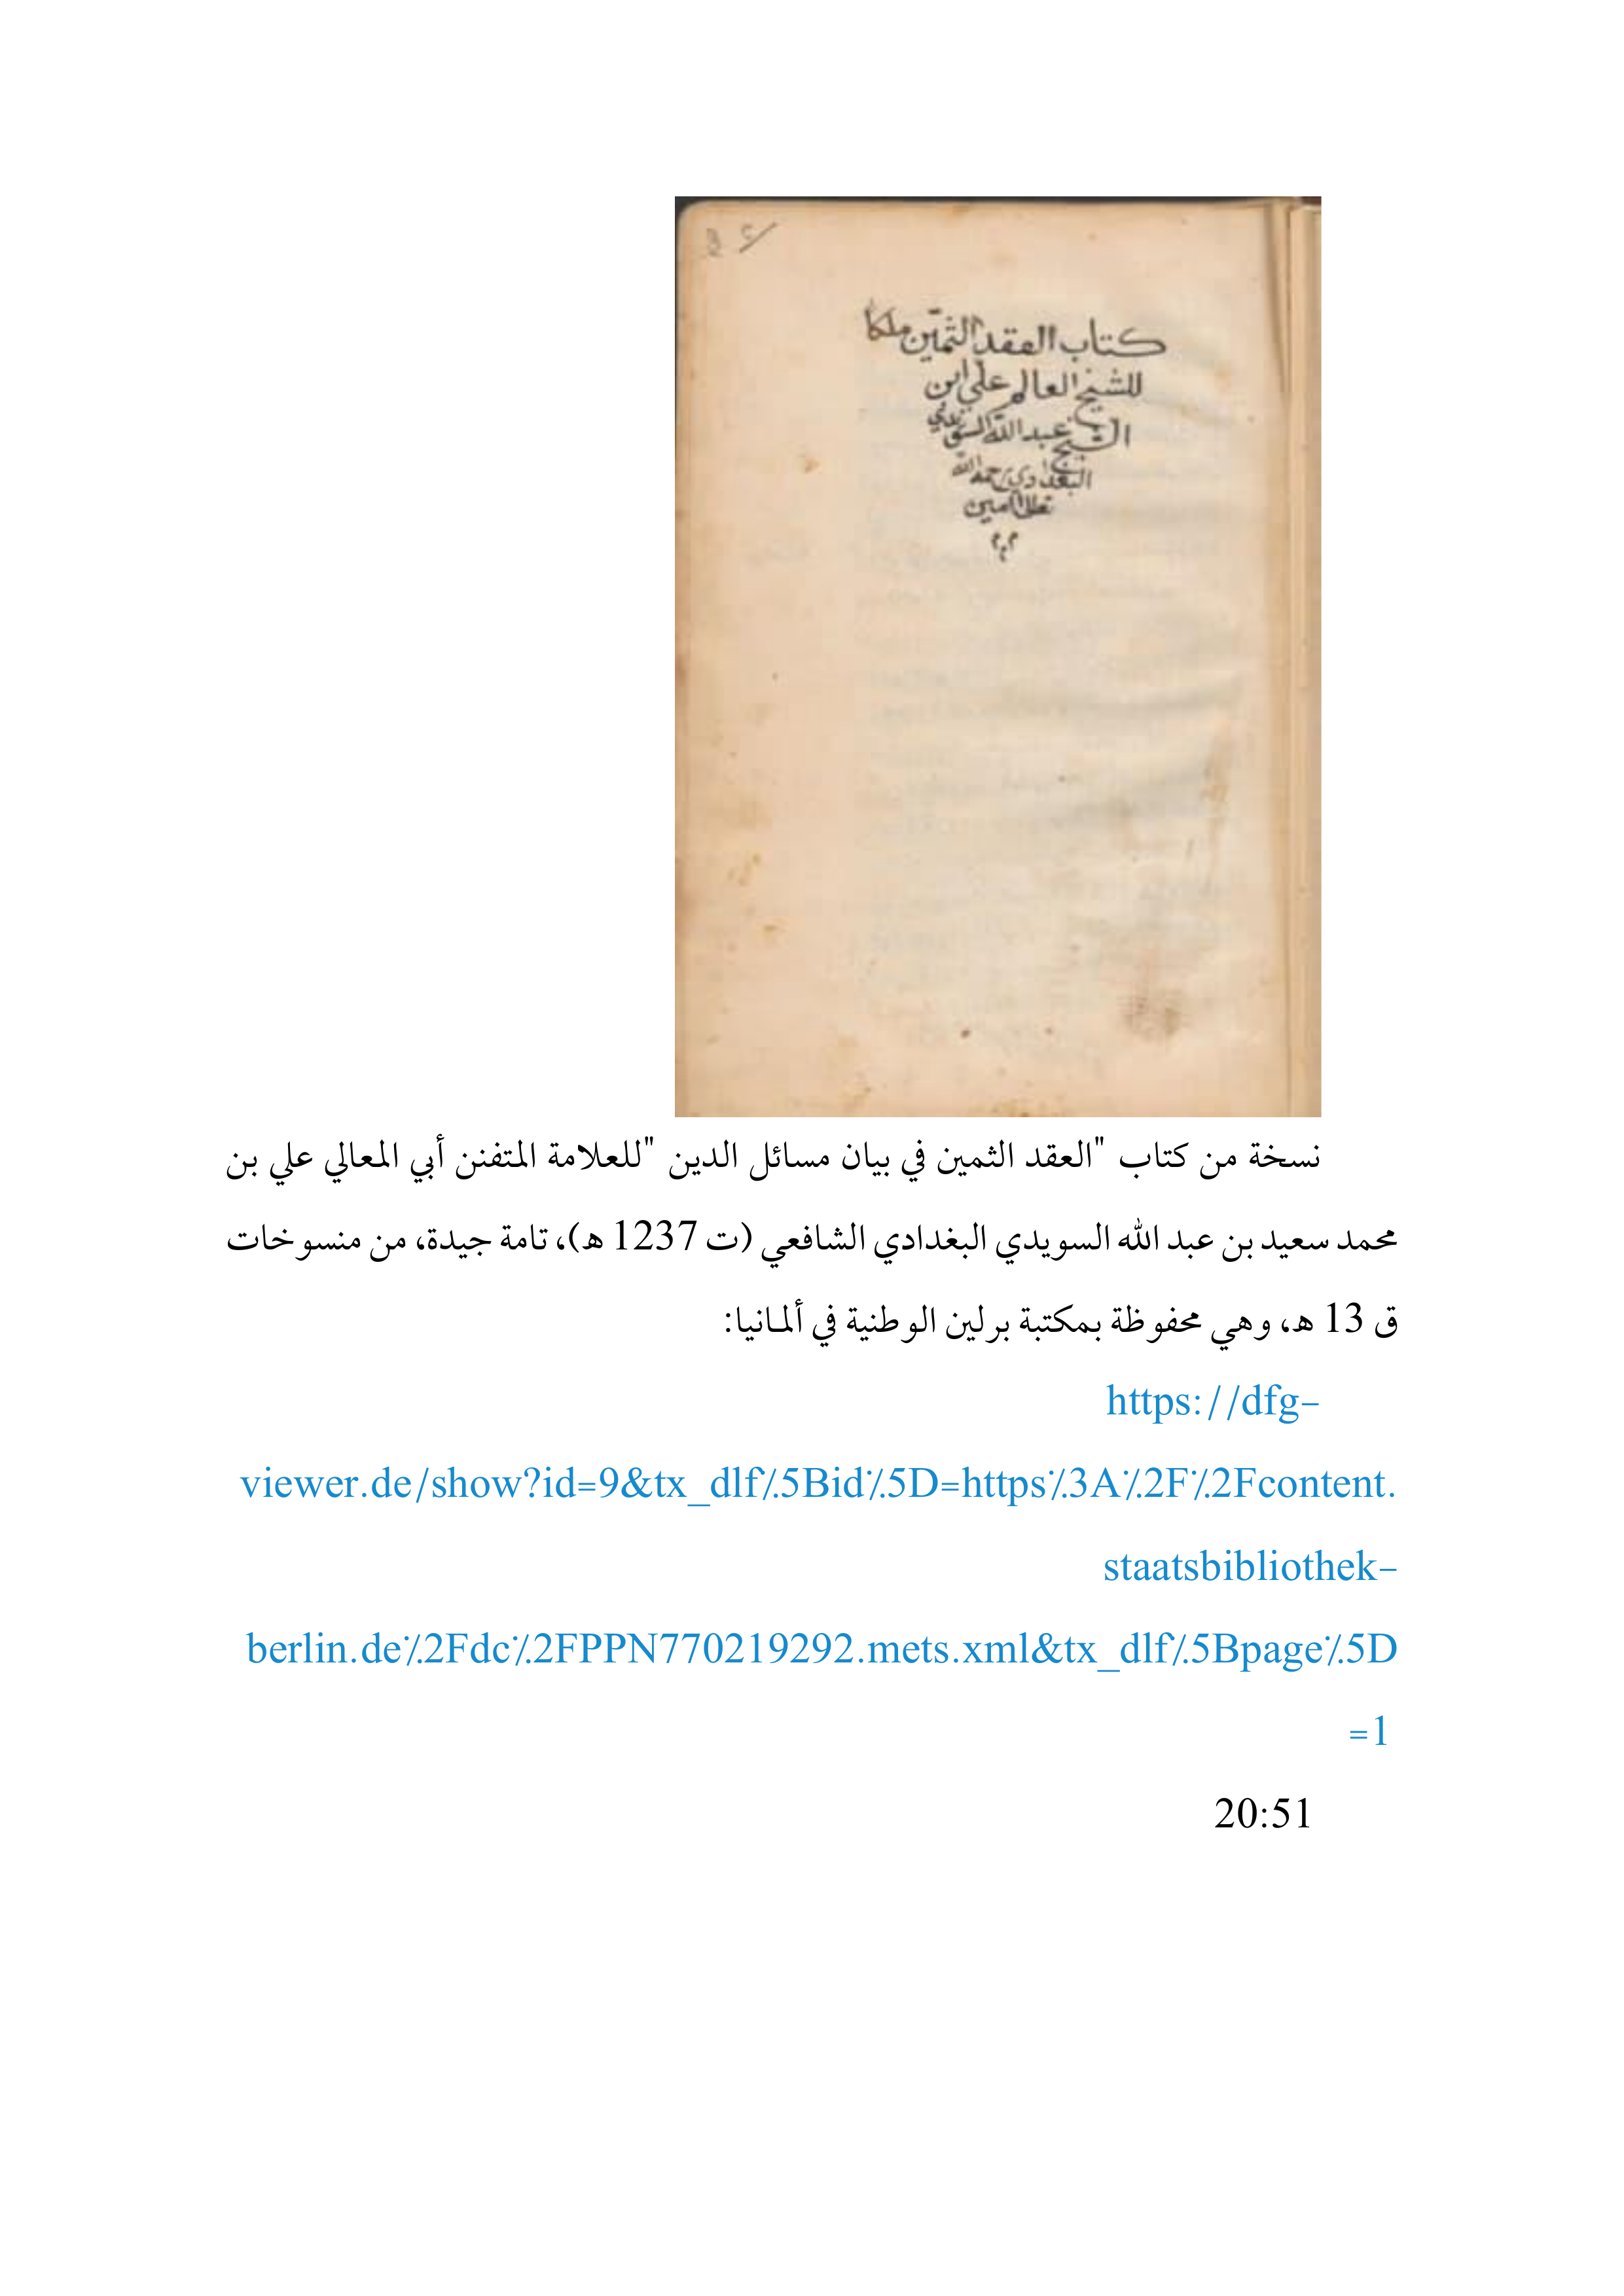 كتاب العقد الثمين
للشيخ العالم علي ابن
الشيخ عبد الله السويدي
البغدادي رحمه الله
تعالى امين
نسخة من كتاب "العقد الثمين في بيان مسائل الدين "للعلامة المتفنن أبي المعالي علي بن
محمد سعيد بن عبد الله السويدي البغدادي الشافعي (ت 1237 هـ)، تامة جيدة، من منسوخات
ق 13 هـ، وهي محفوظة بمكتبة برلين الوطنية في ألمانيا:
https://dfg-
viewer.de/show?id=9&tx_dlf%5Bid%5D=https%3A%2F%2Fcontent.
staatsbibliothek-
berlin.de%2Fdc%2FPPN770219292.mets.xml&tx_dlf%5Bpage%5D
=1
20:51